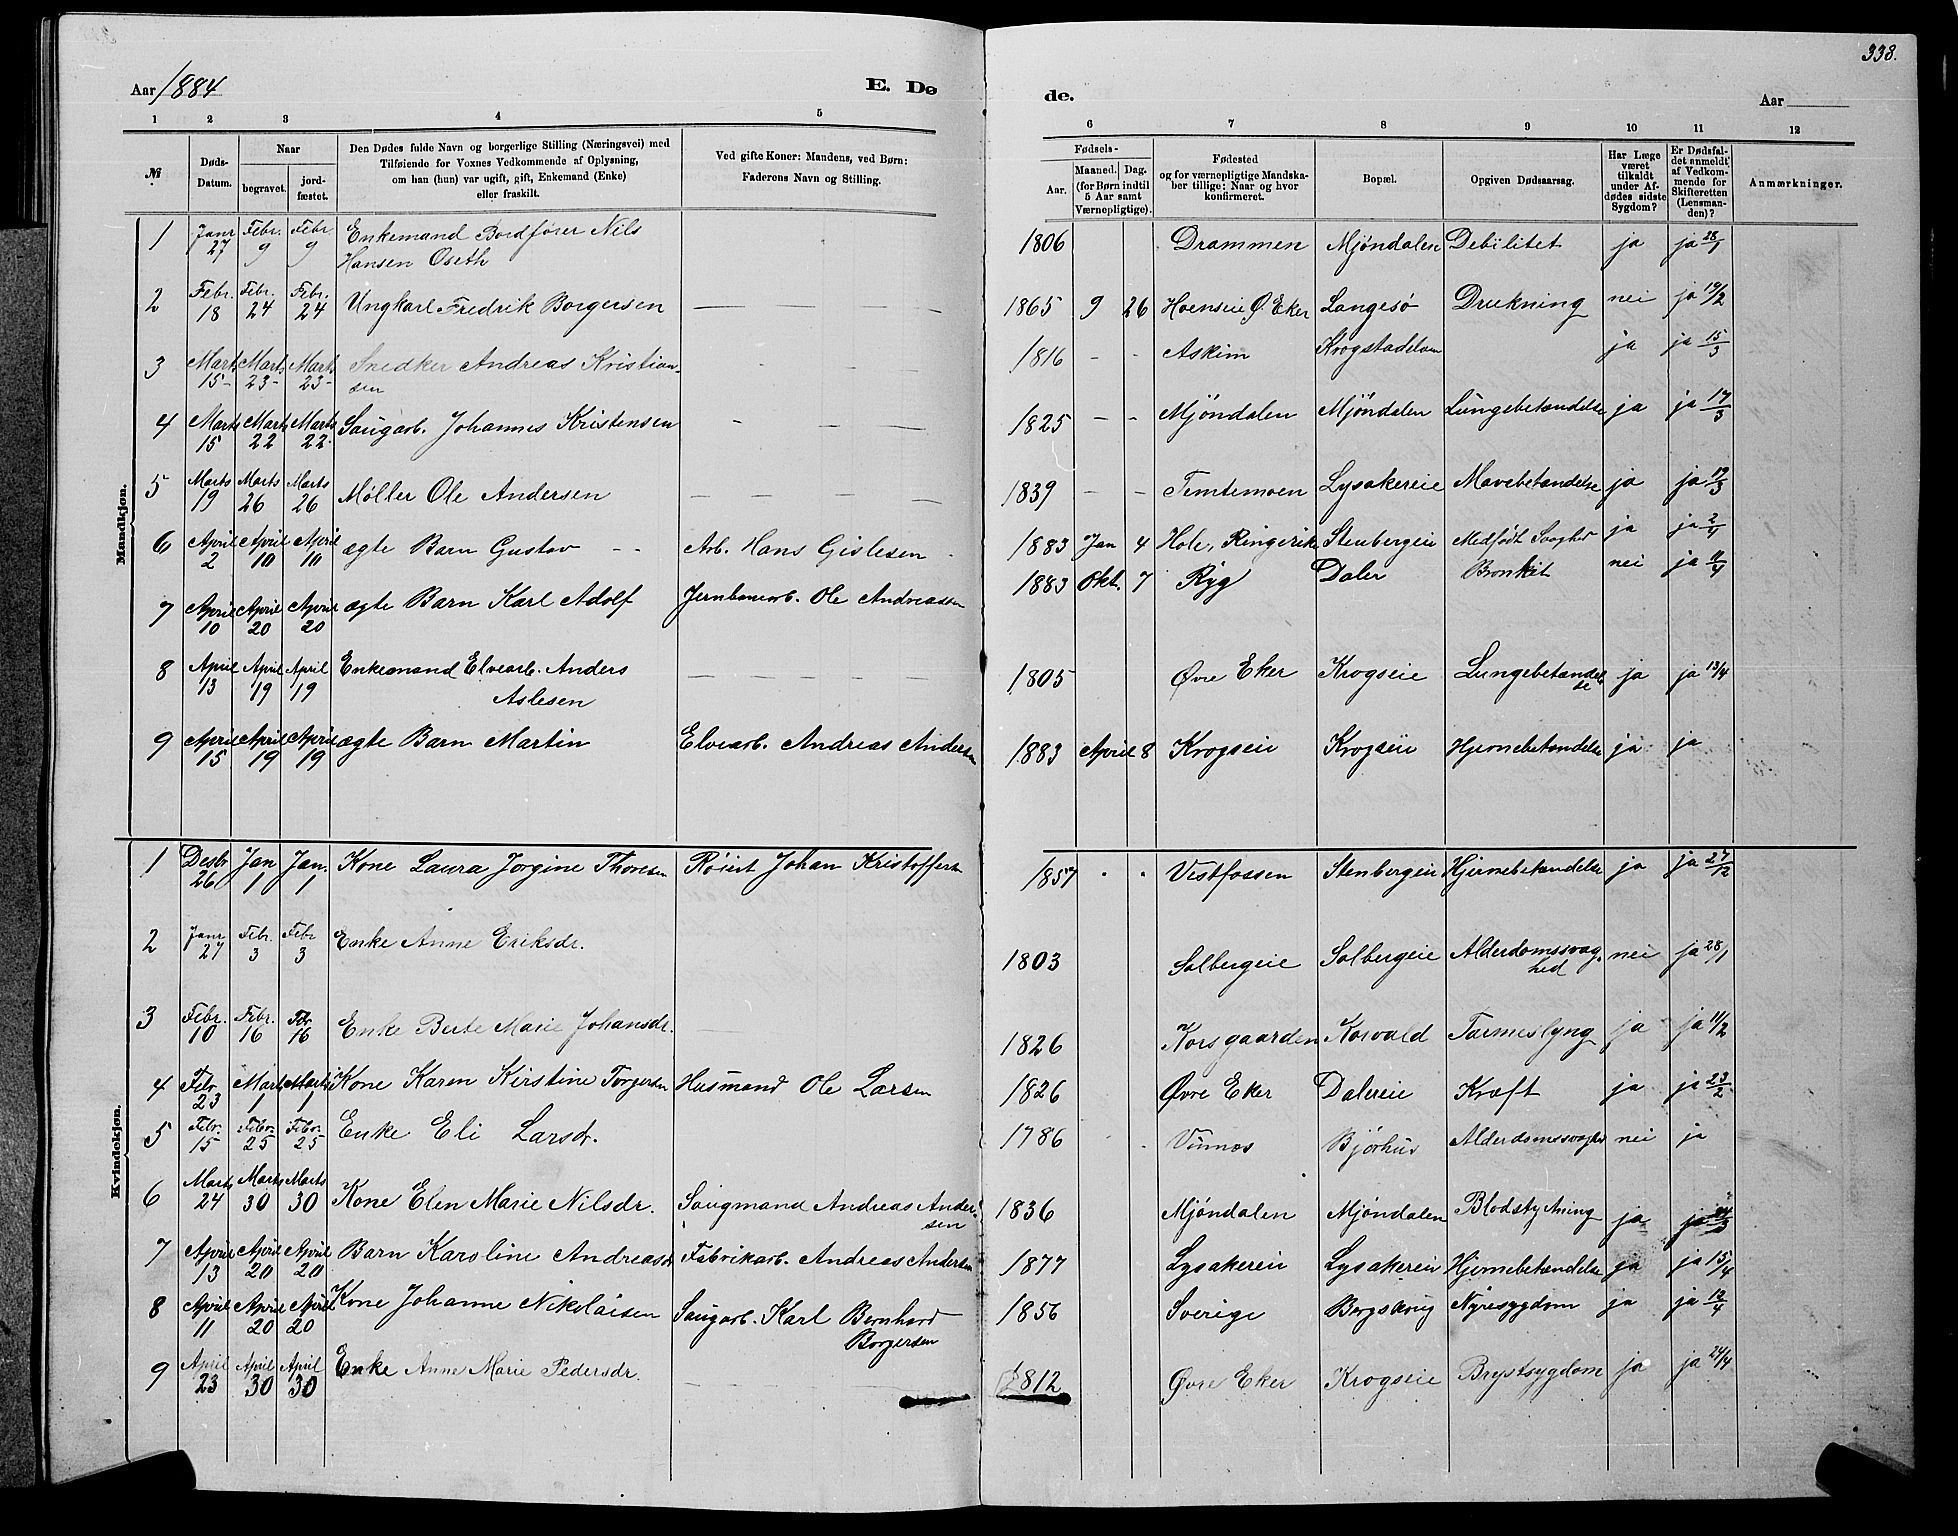 338.
Aar 1884 E. Dø de. Aar
1 2 3 4 5 6 7 8 9 10 11 12
№
Døds-Datum.
Naar
begravet.
jord-fæstet.
Den Dødes fulde Navn og borgerlige Stilling (Næringsvei) med
Tilføiende for Voxnes Vedkommende af Oplysning,
om han (hun) var ugift, gift, Enkemand (Enke)
eller fraskilt.
Ved gifte Koner: Mandens, ved Børn:
Faderens Navn og Stilling.
Fødsels-
Aar.
Maaned. Dag.
(for Børn indtil
5 Aar samt
Værnepligtige).
Fødested
og for værnepligtige Mandska-
ber tillige: Naar og hvor
konfirmeret.
Bopæl.
Opgiven Dødsaarsag.
Har Læge
været
tilkaldt
under Af-
dødes sidste
Sygdom?
Er Dødsfal-
det anmeldt
af Vedkom-
mende for
Skifteretten
(Lensman-
den)?
Anmærkninger.
Mandkjøn.
1 Janr 27 Febr. 9 Febr 9 Enkemand Bordfører Nils
Hansen Øseth 1806 Drammen Mjøndalen Debilitet ja ja 28/1
2 Febr. 18 Febr. 24 Febr. 24 Ungkarl Fredrik Borgersen — — — 1865 9 26 Hoenseie Ø. Eker Langesø Drukning nei ja 19/2
3 Marts 15 Marts 23 Marts 23 Snedker Andreas Kristian-
sen 1816 - - Askim Krogstadelven ja ja 15/3
4 Marts 15 Marts 22 Marts 22 Saugarb. Johannes Kristensen - — — 1825 - - Mjöndalen Mjöndalen Lungebetændelse ja ja 17/3
5 Marts 19 Marts 26 Marts 26 Møller Ole Andersen — — — 1839 - - Temtemoen Lysakereie Mavebetændelse ja ja 19/3
6 April 2 April 10 April 10 ægte Barn Gustav - - Arb. Hans Gislesen 1883 Jan 4 Hole, Ringerike Stenbergeie Medfødt Svaghed ja ja 2/4
7 April 10 April 20 April 20 ægte Barn Karl Adolf Jernbanearb. Ole Andreassen 1883 Okt. 7 Ryg Daler Bronkit nei ja 11/4
8 April 13 April 19 April 19 Enkemand Elvearb. Anders
Aslesen — — — 1805 Øvre Eker Krogseie Lungebetændel-
se ja ja 13/4
9 April 15 April 19 April 19 ægte Barn Martin Elvearb. Andreas Andersen 1883 April 8 Krogseie Krogseie Hjernebetændelse ja ja
Kvindekjøn.
1 Desbr 26 Jan 1 Jan. 1 Kone Laura Jorgine Thoresen Johan Kristoffersen 1857 Vestfossen Stenbergeie Hjernebetændelse ja ja 27/12
2 Janr 27 Febr. 3 Febr 3 Enke Anne Eriksdr. 1803 Solbergeie Solbergeie Alderdomssvag-
hed nei ja 28/1
3 Febr. 10 Febr. 16 Febr 16 Enke Berte Marie Johansdr. 1826 Korsgaarden Korvald Tarmeslyng ja ja 11/2
4 Febr 23 Marts 1 Marts 1 Kone Karen Kirstine Torgersen Husmand Ole Larsen 1826 Øvre Eker Dalereie Kræft ja ja 23/2
5 Febr. 15 Febr. 25 Febr. 25 Enke Eli Larsdr. 1786 Vinnes Björhus Alderdomssvaghed nei ja
6 Marts 24 Marts 30 Marts 30 Kone Elen Marie Nilsdr. Saugmand Andreas Ander-
sen 1836 Mjöndalen Mjöndalen Blodstyrtning ja ja
7 April 13 April 20 April 20 Barn Karoline Andreasdr Fabrikarb. Andreas Andersen 1877 Lysakereie Lysakereie Hjernebetændelse ja ja 15/4
8 April 11 April 20 April 20 Kone Johanne Nikolaisen Saugarb. Karl Bernhard
Borgersen 1856 Sverige Bergskoug Nyresygdom ja ja 12/4
9 April 23 April 30 April 30 Enke Anne Marie Pedersdr. 1812 Øvre Eker Krogseie Brystsygdom ja ja 24/4